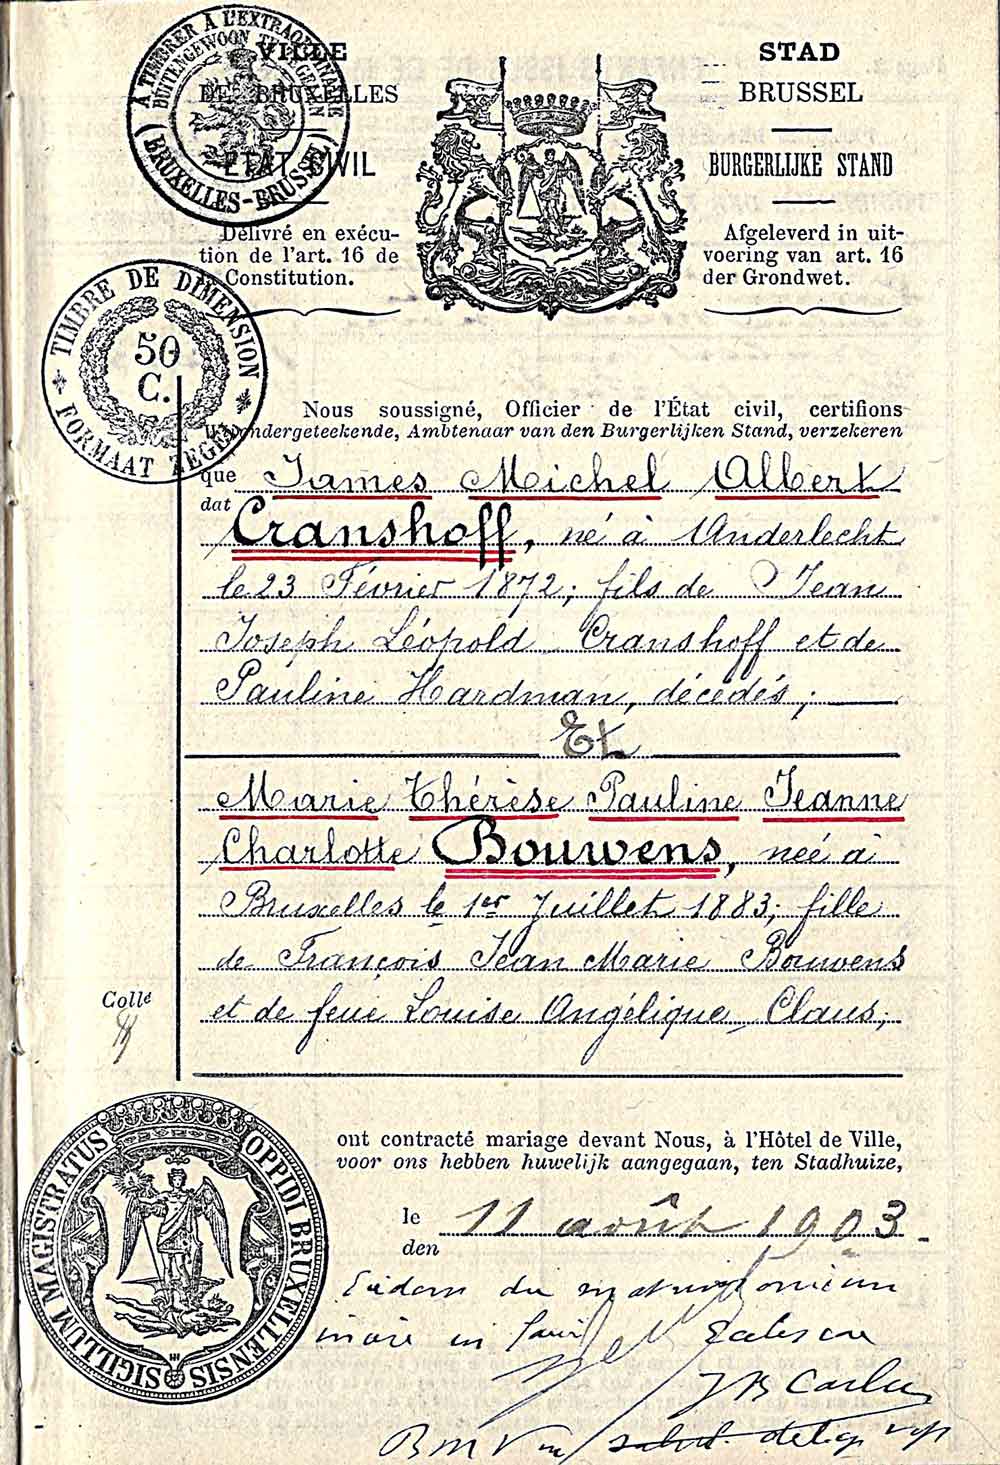 VILLE
DE BRUXELLES
ETAT CIVIL
Délivré en exécu-
tion de l'art. 16 de
la Constitution.
STAD
BRUSSEL
BURGERLIJKE STAND
Afgeleverd in uit-
voering van art. 16
der Grondwet.
A TIMBRER À L'EXTRAORDINAIRE
BUITENGEWOON TE ZEGELEN
(BRUXELLES-BRUSSEL)
TIMBRE DE DIMENSION
50
C.
FORMAAT ZEGEL
Nous soussigné, Officier de l'État civil, certifions
Wij ondergeteekende, Ambtenaar van den Burgerlijken Stand, verzekeren
que James Michel Albert
dat
Cranshoff, né à Anderlecht
le 23 Février 1872; fils de Jean
Joseph Léopold Cranshoff et de
Pauline Hardman, décédés;
Et
Marie Thérèse Pauline Jeanne
Charlotte Bouwens, née à
Bruxelles le 1er Juillet 1883, fille
de François Jean Marie Bouwens
et de feue Louise Angélique Claus,
Collé
SIGILLUM MAGISTRATUS OPPIDI BRUXELLENSIS
ont contracté mariage devant Nous, à l'Hôtel de Ville,
voor ons hebben huwelijk aangegaan, ten Stadhuize,
le 11 août 1903.
den